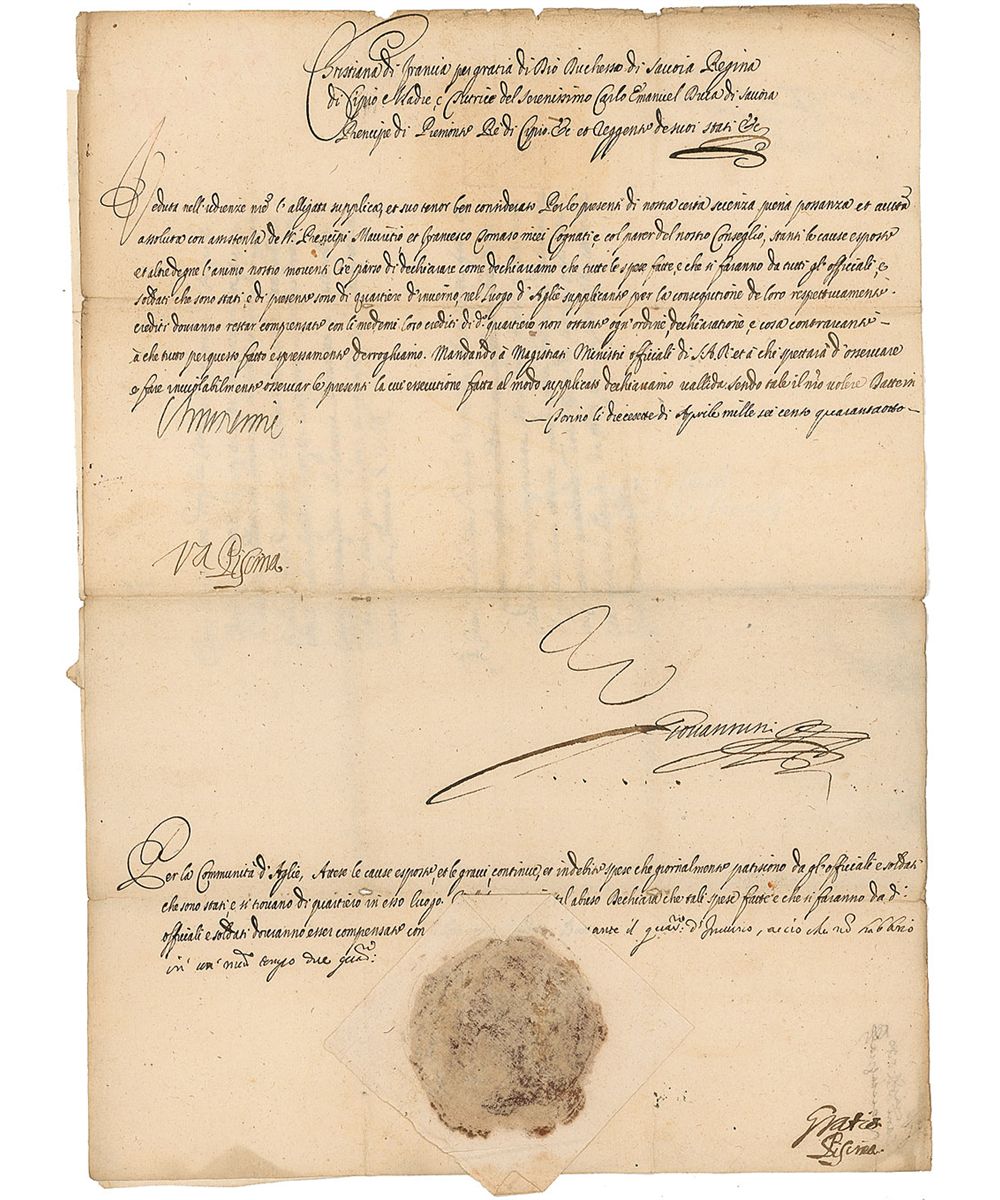 Christiana di Francia per gratia di Dio Duchessa di Savoia Regina
di Cipro Madre, e Tutrice del Serenissimo Carlo Emanuel Duca di Savoia
Prencipe di Piemonte Re di Cipro &c et Reggente de suoi stati &c
Veduta nell'udienze nre l'alligata supplica, et suo tenor ben considerato Per le presenti di nostra certa scienza piena possanza et autta
assoluta con assistenza de Prencipi Mauritio et Francesco Tomaso miei Cognati e col parer del nostro Conseglio, stanti le cause esposte
et altre degne l'animo nostro moventi C'è parso di dechiarare come dechiaramo che tutte le spese fatte, e che si faranno da tutti gl'officiali, e
soldati che sono stati, e di presente sono di quartiere d'inverno, nel Luogo d'Agliè supplicante per la consequtione de loro respettivamente
crediti dovranno restar compensate con li medemi loro crediti di do quartiero non ostante ogn'ordine dechiaratione, e cosa contrariante
à che tutto per questo fatto espressamente derroghiamo. Mandando à Magistrati Ministri officiali di S.A.R. et à chi spettarà d'osservare
e fare inviolabilmente osservar le presenti la cui essecutione fatta al modo supplicato dechiaramo vallida. Sendo tale il nro volere Datte in
Torino li diecesette di Aprile mille sei cento quarantaotto
Chrestienne
Va Piscina.
Giovannini
Per la Communità d'Agliè, Attese le cause esposte, et le gravi, continue, et indebite spese che giornalmente patiscono da gl'officiali e soldati
che sono stati, e si trovano di quartiero in esso luogo. abuso Dechiara che tali spese fatte e che si faranno da di
officiali e soldati dovranno esser compensate con il quarre d'Inverno, accio che no habbino
in un' medo tempo due quarri
Gratis
Piscina.